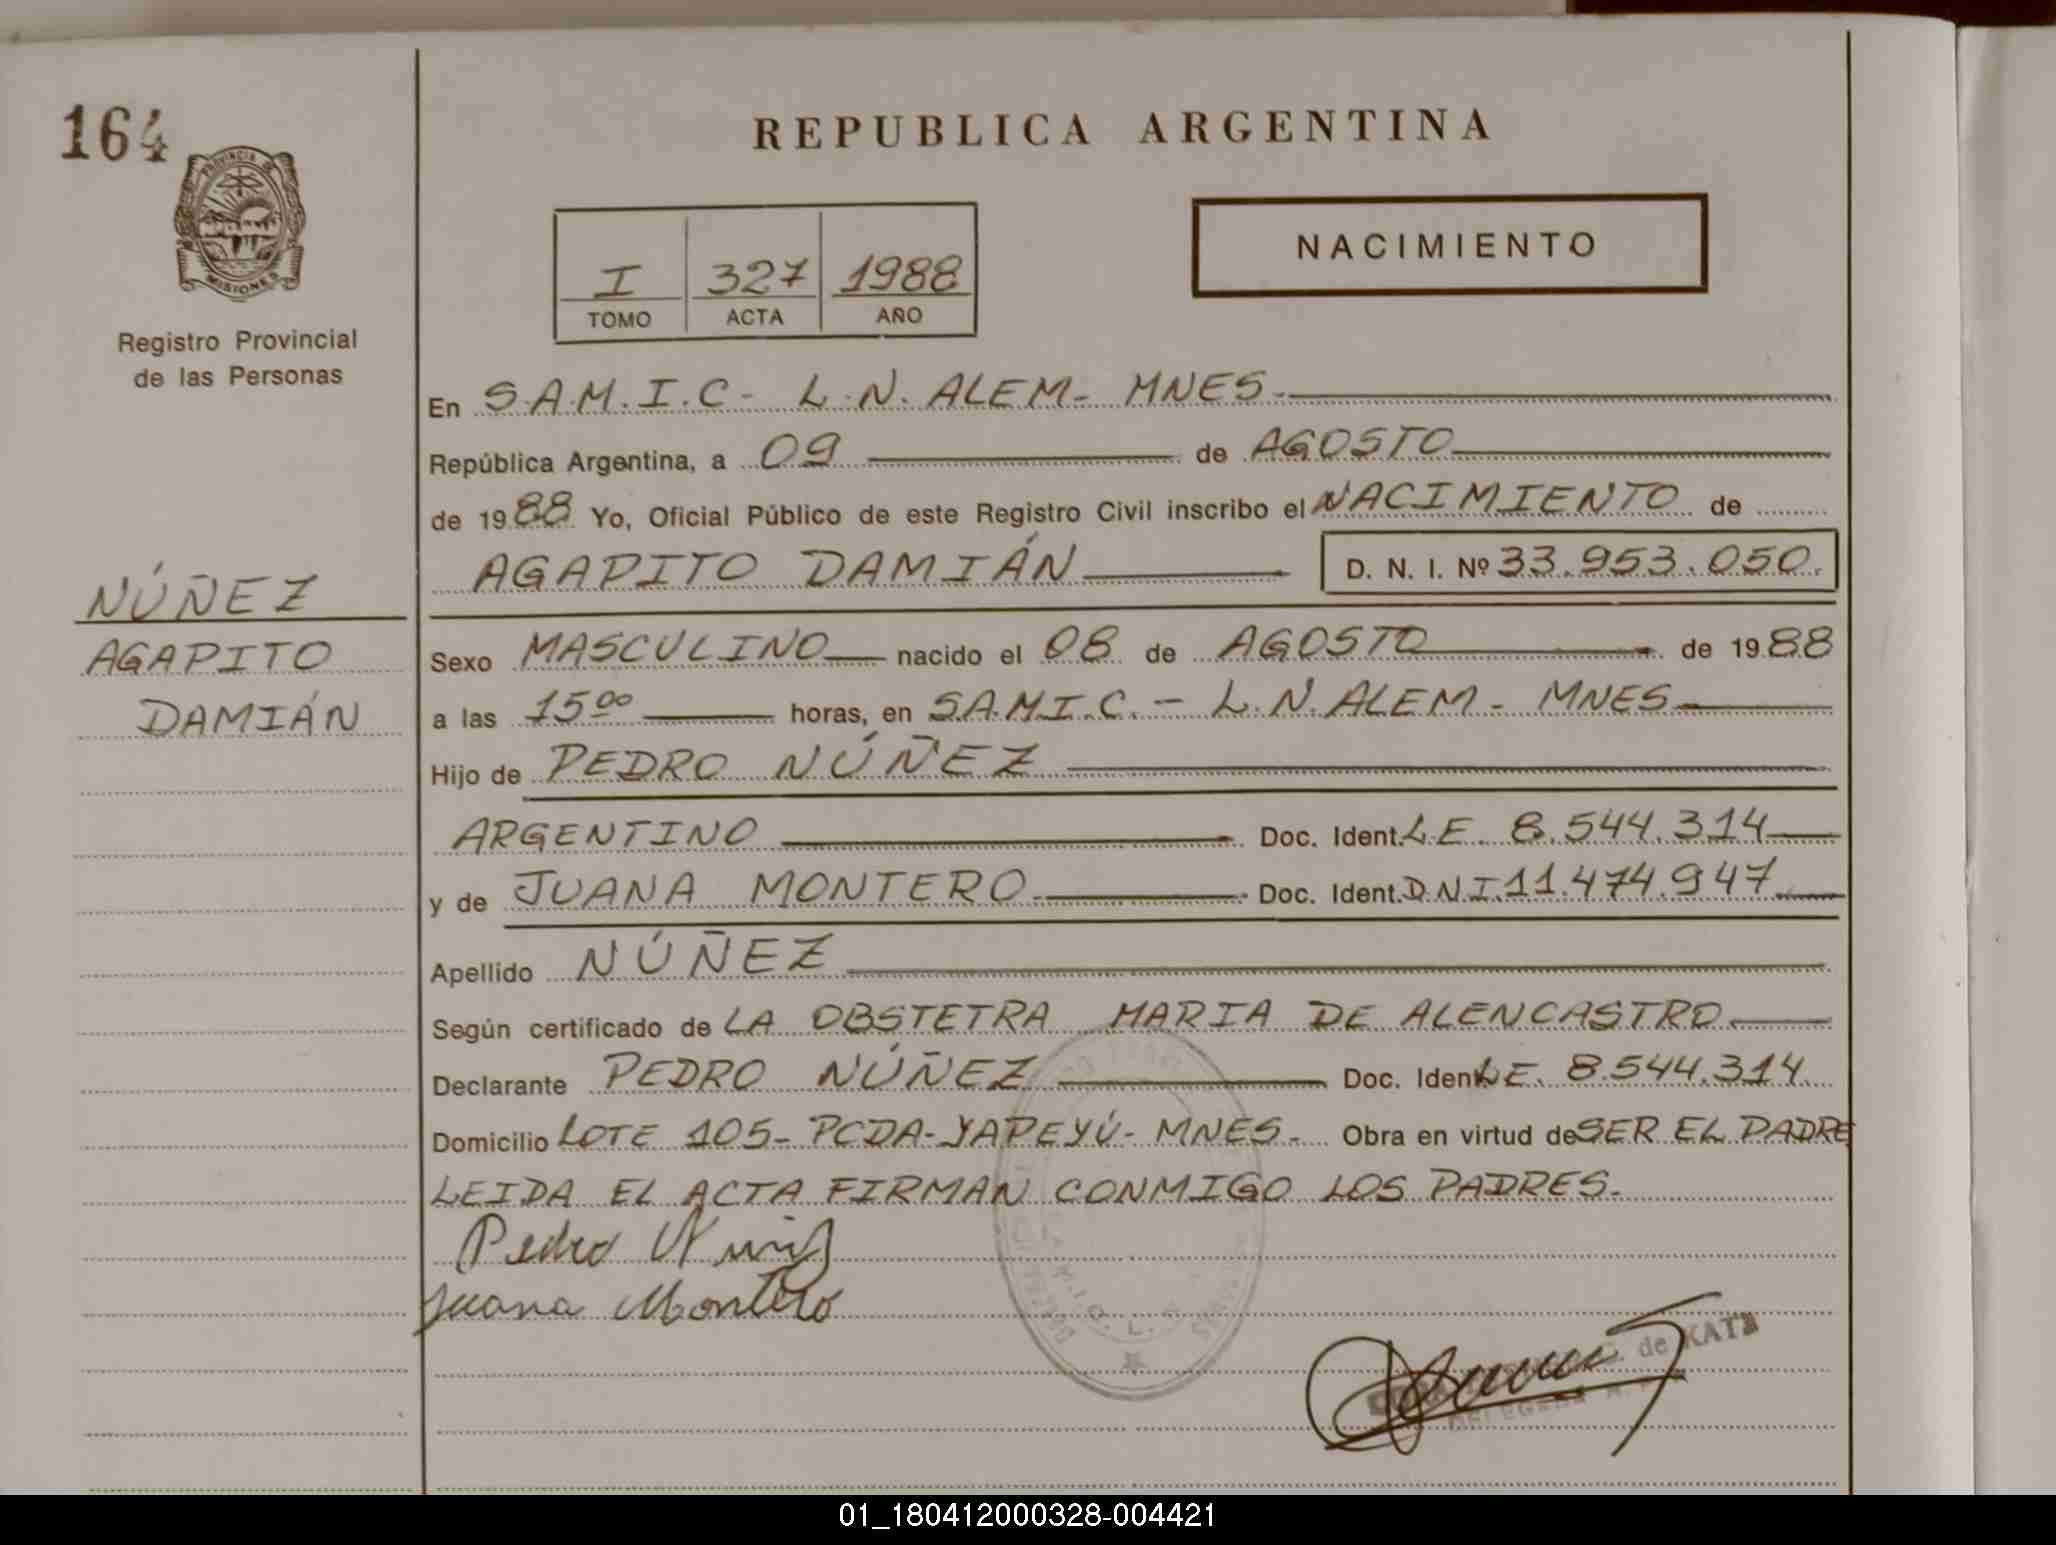 164
PROVINCIA DE
MISIONES
Registro Provincial
de las Personas
NÚÑEZ
AGAPITO
DAMIÁN
REPUBLICA ARGENTINA
I 327 1988
TOMO ACTA AÑO
NACIMIENTO
En S.A.M.I.C- L.N. ALEM- MNES-
República Argentina, a 09 de AGOSTO
de 1988 Yo, Oficial Público de este Registro Civil inscribo el NACIMIENTO de
AGAPITO DAMIÁN D. N. I. Nº 33.953.050.
Sexo MASCULINO nacido el 08 de AGOSTO de 1988
a las 15⁰⁰ horas, en S.A.M.I.C.- L.N. ALEM- MNES
Hijo de PEDRO NÚÑEZ
ARGENTINO Doc. Ident. L.E. 8.544.314
y de JUANA MONTERO Doc. Ident. D.N.I. 11.474.947
Apellido NÚÑEZ
Según certificado de LA OBSTETRA MARIA DE ALENCASTRO
Declarante PEDRO NÚÑEZ Doc. Ident. L.E. 8.544.314
Domicilio LOTE 105- PCDA- YAPEYÚ- MNES- Obra en virtud de SER EL PADRE
LEIDA EL ACTA FIRMAN CONMIGO LOS PADRES.
Pedro Nuñez
Juana Montero
de KATZ
01_180412000328-004421